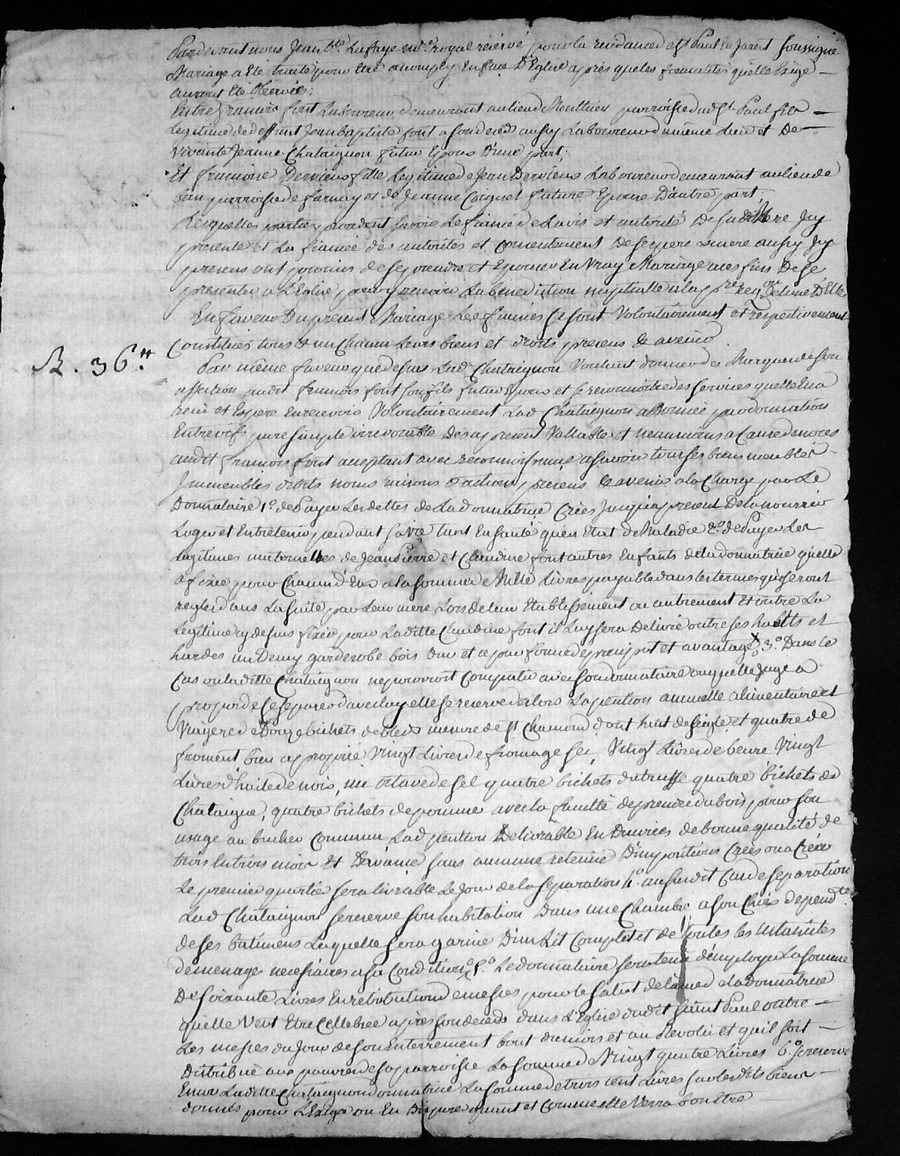 Pardevant nous Jean Bte Lafaye no.re royal réservé pour la residance de St Paul en Jarest soussigné
Mariage a eté traité pour etre accomply en face D'Eglise apres que les formalités qu'elle Exige
auront eté observées;
Entre françois font Laboureur demeurant au lieu de parroisse dudt St Paul fils
Legitime de deffunt Jean baptiste font a son deceds aussy Laboureur du meme Lieu et De
Vivante Jeanne Chataignon futur Epoux D'une part;
Et françoise Derviens fille Legitime de Jean Derviens Laboureur demeurant au lieu de
parroisse de farnay et de Jeanne Coignet future Epouse D'autre part.
Lesquelles parties procedant sçavoir Le fiancé de L'avis et autorité De sa ditte mere Icy
presente et La fiancée des autorités et consentement De ses pere et mere aussy Icy
presens ont promis de se prendre et Epouser En Vray Mariage aux fins De se
presenter a L'Eglise pour y recevoir La benediction nuptialle a la pre reqon de L'une D'Elles
En faveur Du present Mariage Les fiancés se sont Volontairement et respectivement
Constitués tous et un chacun Leurs biens et droits presens et avenir.
R. 36.tt
Par meme faveur que dessus Lad. Chataignon Voulant donner des Marques de son
affection audit françois font son fils futur Epoux et reconnoitre des services qu'elle en a
recu et Espere en recevoir Volontairement Lad Chataignon a donnée par donnation
Entrevifs pure simple irrevocable Des a present Vallable et nommement a Cause de noces
audit françois font acceptant avec reconnoissance a sçavoir tous ses biens meubles
Immeubles droits noms raisons et actions presens et avenir a la Charge par Le
Donnataire 1o. de Payer Les dettes de La donnatrice Crées Jusqu'a present De la nourrir
Loger et Entretenir pendant sa vie tant En santé qu'en Etat de Maladie 2o. de Payer Les
Legitimes maternelles de Jean Pierre et Claudine font autres Enfants de la donnatrice qu'elle
a fixée pour chacun d'Eux a la somme de Mille Livres payable dans les termes qui seront
reglés dans La suite par Leur mere Lors de leur Etablissement ou autrement Et outre La
Legitime cy dessus fixée pour La ditte Claudine font il Luy sera Delivré outre ses habits et
hardes un Demy garderobe bois Dur et ce par forme de preciput et avantage 3o. Dans le
Cas ou la ditte Chataignon ne pourroit Compatir avec son donnataire ou qu'elle Juge a
propos de se separer d'avec luy elle se reserve des lors La pention annuelle alimentaire et
Viagere de Douze bichets de bleds mesure de St Chamond dont huit de seigle et quatre de
froment bien approprié Vingt Livres de fromage sec, Vingt Livres de beure Vingt
Livres d'huile de noix, un octave de sel quatre bichets de truffe quatre bichets de
Chataigne, quatre bichets de pomme avec la faculté de prendre du bois pour son
usage au bucher Commun Lad pention Delivrable En Denrées de bonne qualité de
trois En trois mois Et D'avance sans aucune retenue D'impositions Crées ou a Créer
Le premier quartier sera livrable Le Jour de la separation 4o. au susdit Cas de separation
Lad Chataignon se reserve son habitation Dans une Chambre a son Choix dependte
de ses batimens Laquelle sera garnie D'un Lit Complet et de toutes les Ustancilles
de menage necessaires a sa Condition 5o. Le donnataire sera tenu d'employer La somme
De soixante Livres En retribution de messes pour le salut de L'ame de la donnatrice
qu'elle Veut Etre Cellebrée apres son deceds dans L'Eglise dudit saint Paul outre
Les messes du Jour de son Enterrement bout de mois et au revolu et qu'il soit
Distribué aux pauvres de sa parroisse La somme de Vingt quatre Livres 6o. se reserve
Encore La ditte Chataignon donnatrice La somme de trois cent Livres sur les dits biens
donnés pour L'Exiger ou En Disposer quand et Comme elle Verra bon Etre